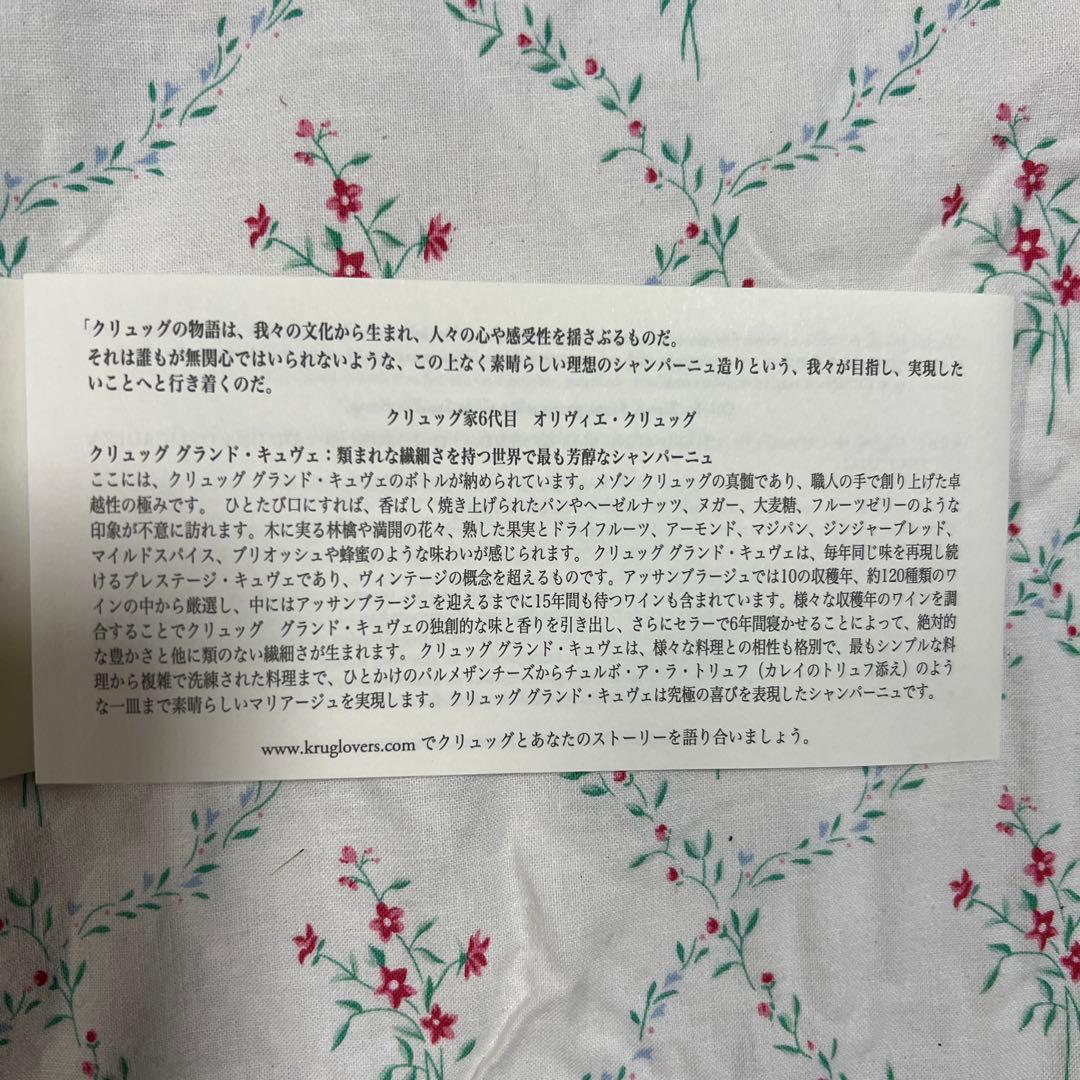 「クリュッグの物語は、我々の文化から生まれ、人々の心や感受性を揺さぶるものだ。
それは誰もが無関心ではいられないような、この上なく素晴らしい理想のシャンパーニュ造りという、我々が目指し、実現した
いことへと行き着くのだ。
クリュッグ家6代目 オリヴィエ・クリュッグ
クリュッグ グランド・キュヴェ：類まれな繊細さを持つ世界で最も芳醇なシャンパーニュ
ここには、クリュッグ グランド・キュヴェのボトルが納められています。メゾン クリュッグの真髄であり、職人の手で創り上げた卓
越性の極みです。 ひとたび口にすれば、香ばしく焼き上げられたパンやヘーゼルナッツ、ヌガー、大麦糖、フルーツゼリーのような
印象が不意に訪れます。木に実る林檎や満開の花々、熟した果実とドライフルーツ、アーモンド、マジパン、ジンジャーブレッド、
マイルドスパイス、ブリオッシュや蜂蜜のような味わいが感じられます。クリュッグ グランド・キュヴェは、毎年同じ味を再現し続
けるプレステージ・キュヴェであり、ヴィンテージの概念を超えるものです。アッサンブラージュでは10の収穫年、約120種類のワ
インの中から厳選し、中にはアッサンブラージュを迎えるまでに15年間も待つワインも含まれています。様々な収穫年のワインを調
合することでクリュッグ グランド・キュヴェの独創的な味と香りを引き出し、さらにセラーで6年間寝かせることによって、絶対的
な豊かさと他に類のない繊細さが生まれます。 クリュッグ グランド・キュヴェは、様々な料理との相性も格別で、最もシンプルな料
理から複雑で洗練された料理まで、ひとかけのパルメザンチーズからチュルボ・ア・ラ・トリュフ（カレイのトリュフ添え）のよう
な一皿まで素晴らしいマリアージュを実現します。 クリュッグ グランド・キュヴェは究極の喜びを表現したシャンパーニュです。
www.kruglovers.com でクリュッグとあなたのストーリーを語り合いましょう。